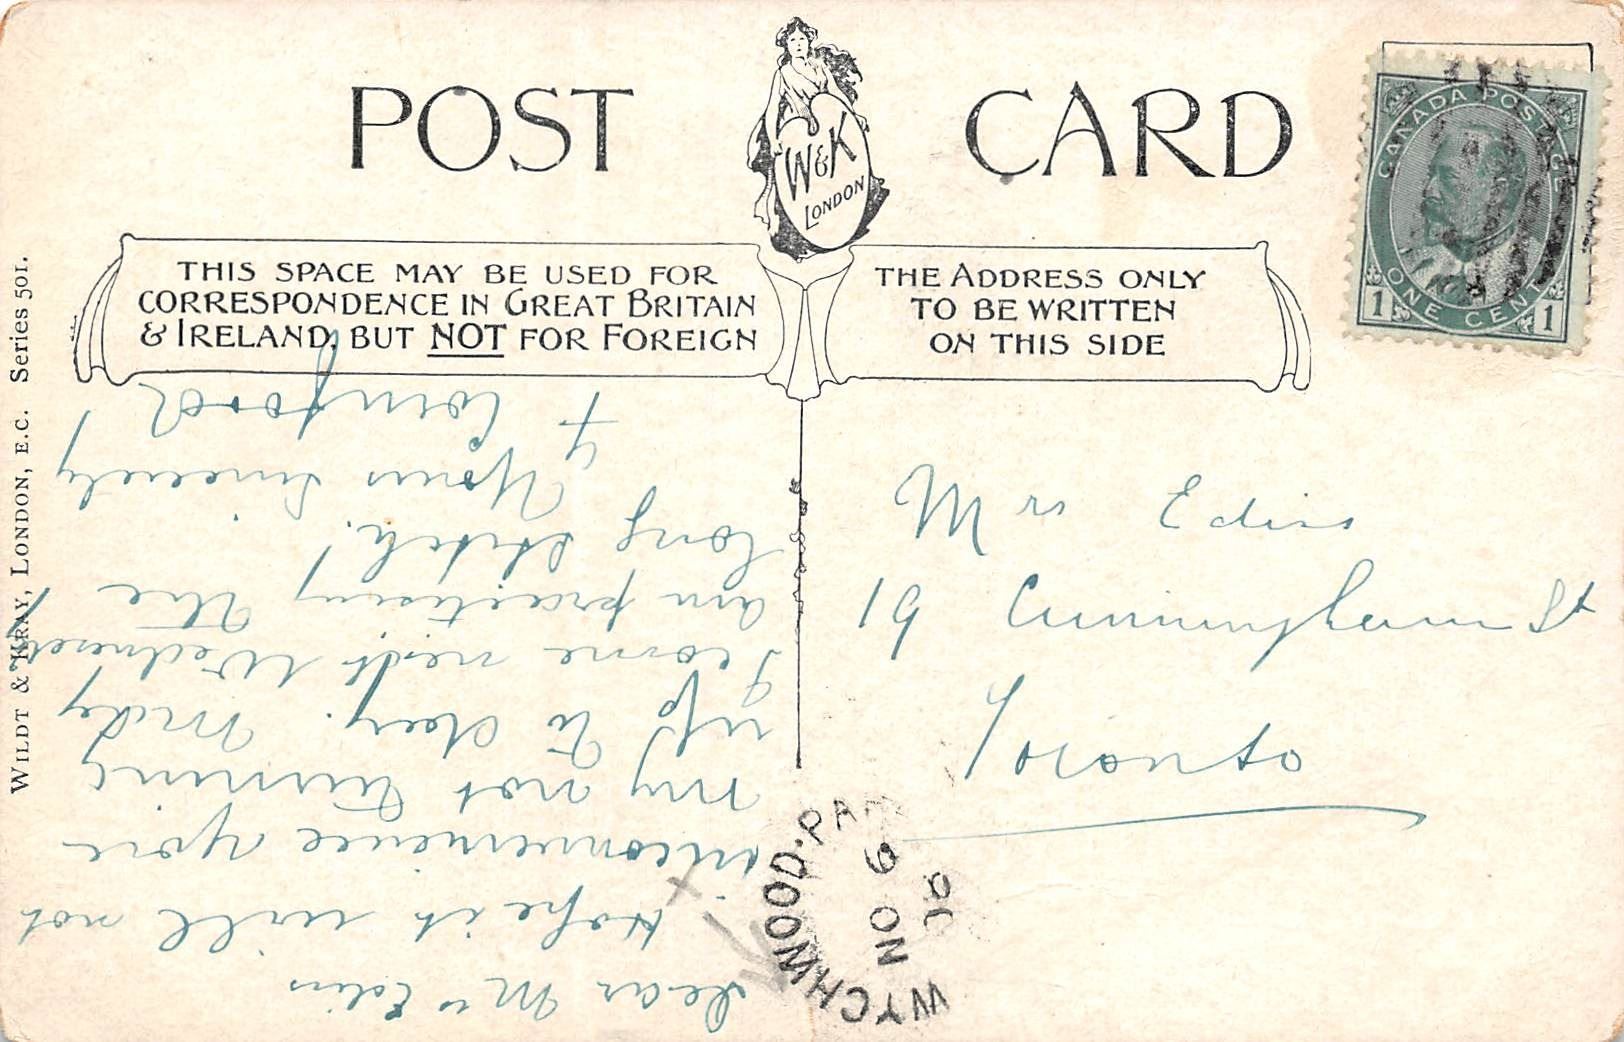 POST CARD
W&K
LONDON
CANADA POSTAGE
1 ONE CENT 1
THIS SPACE MAY BE USED FOR
CORRESPONDENCE IN GREAT BRITAIN
& IRELAND, BUT NOT FOR FOREIGN
THE ADDRESS ONLY
TO BE WRITTEN
ON THIS SIDE
WILDT & KRAY, LONDON, E.C. Series 501.
Dear Mrs Edis
Hope it will not
inconvenience you
my not turning
up to day. May
I come next Wednesday
am practising the
long stitch!
Yours sincerely
Mrs Edis
19 Cunningham St
Toronto
WYCHWOOD-PAR
NO 6